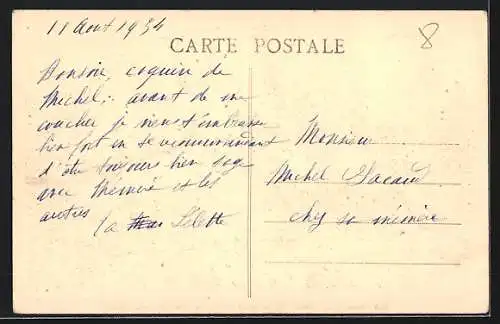 11 Aout 1934
CARTE POSTALE
8
Bonsoir, coquin de
Michel, avant de me
coucher je viens t'embrasser
bien fort en te recommandant
d'être toujours bien sage
avec Mémère et les
autres
Ta Lilette
Monsieur
Michel
chez sa mémère